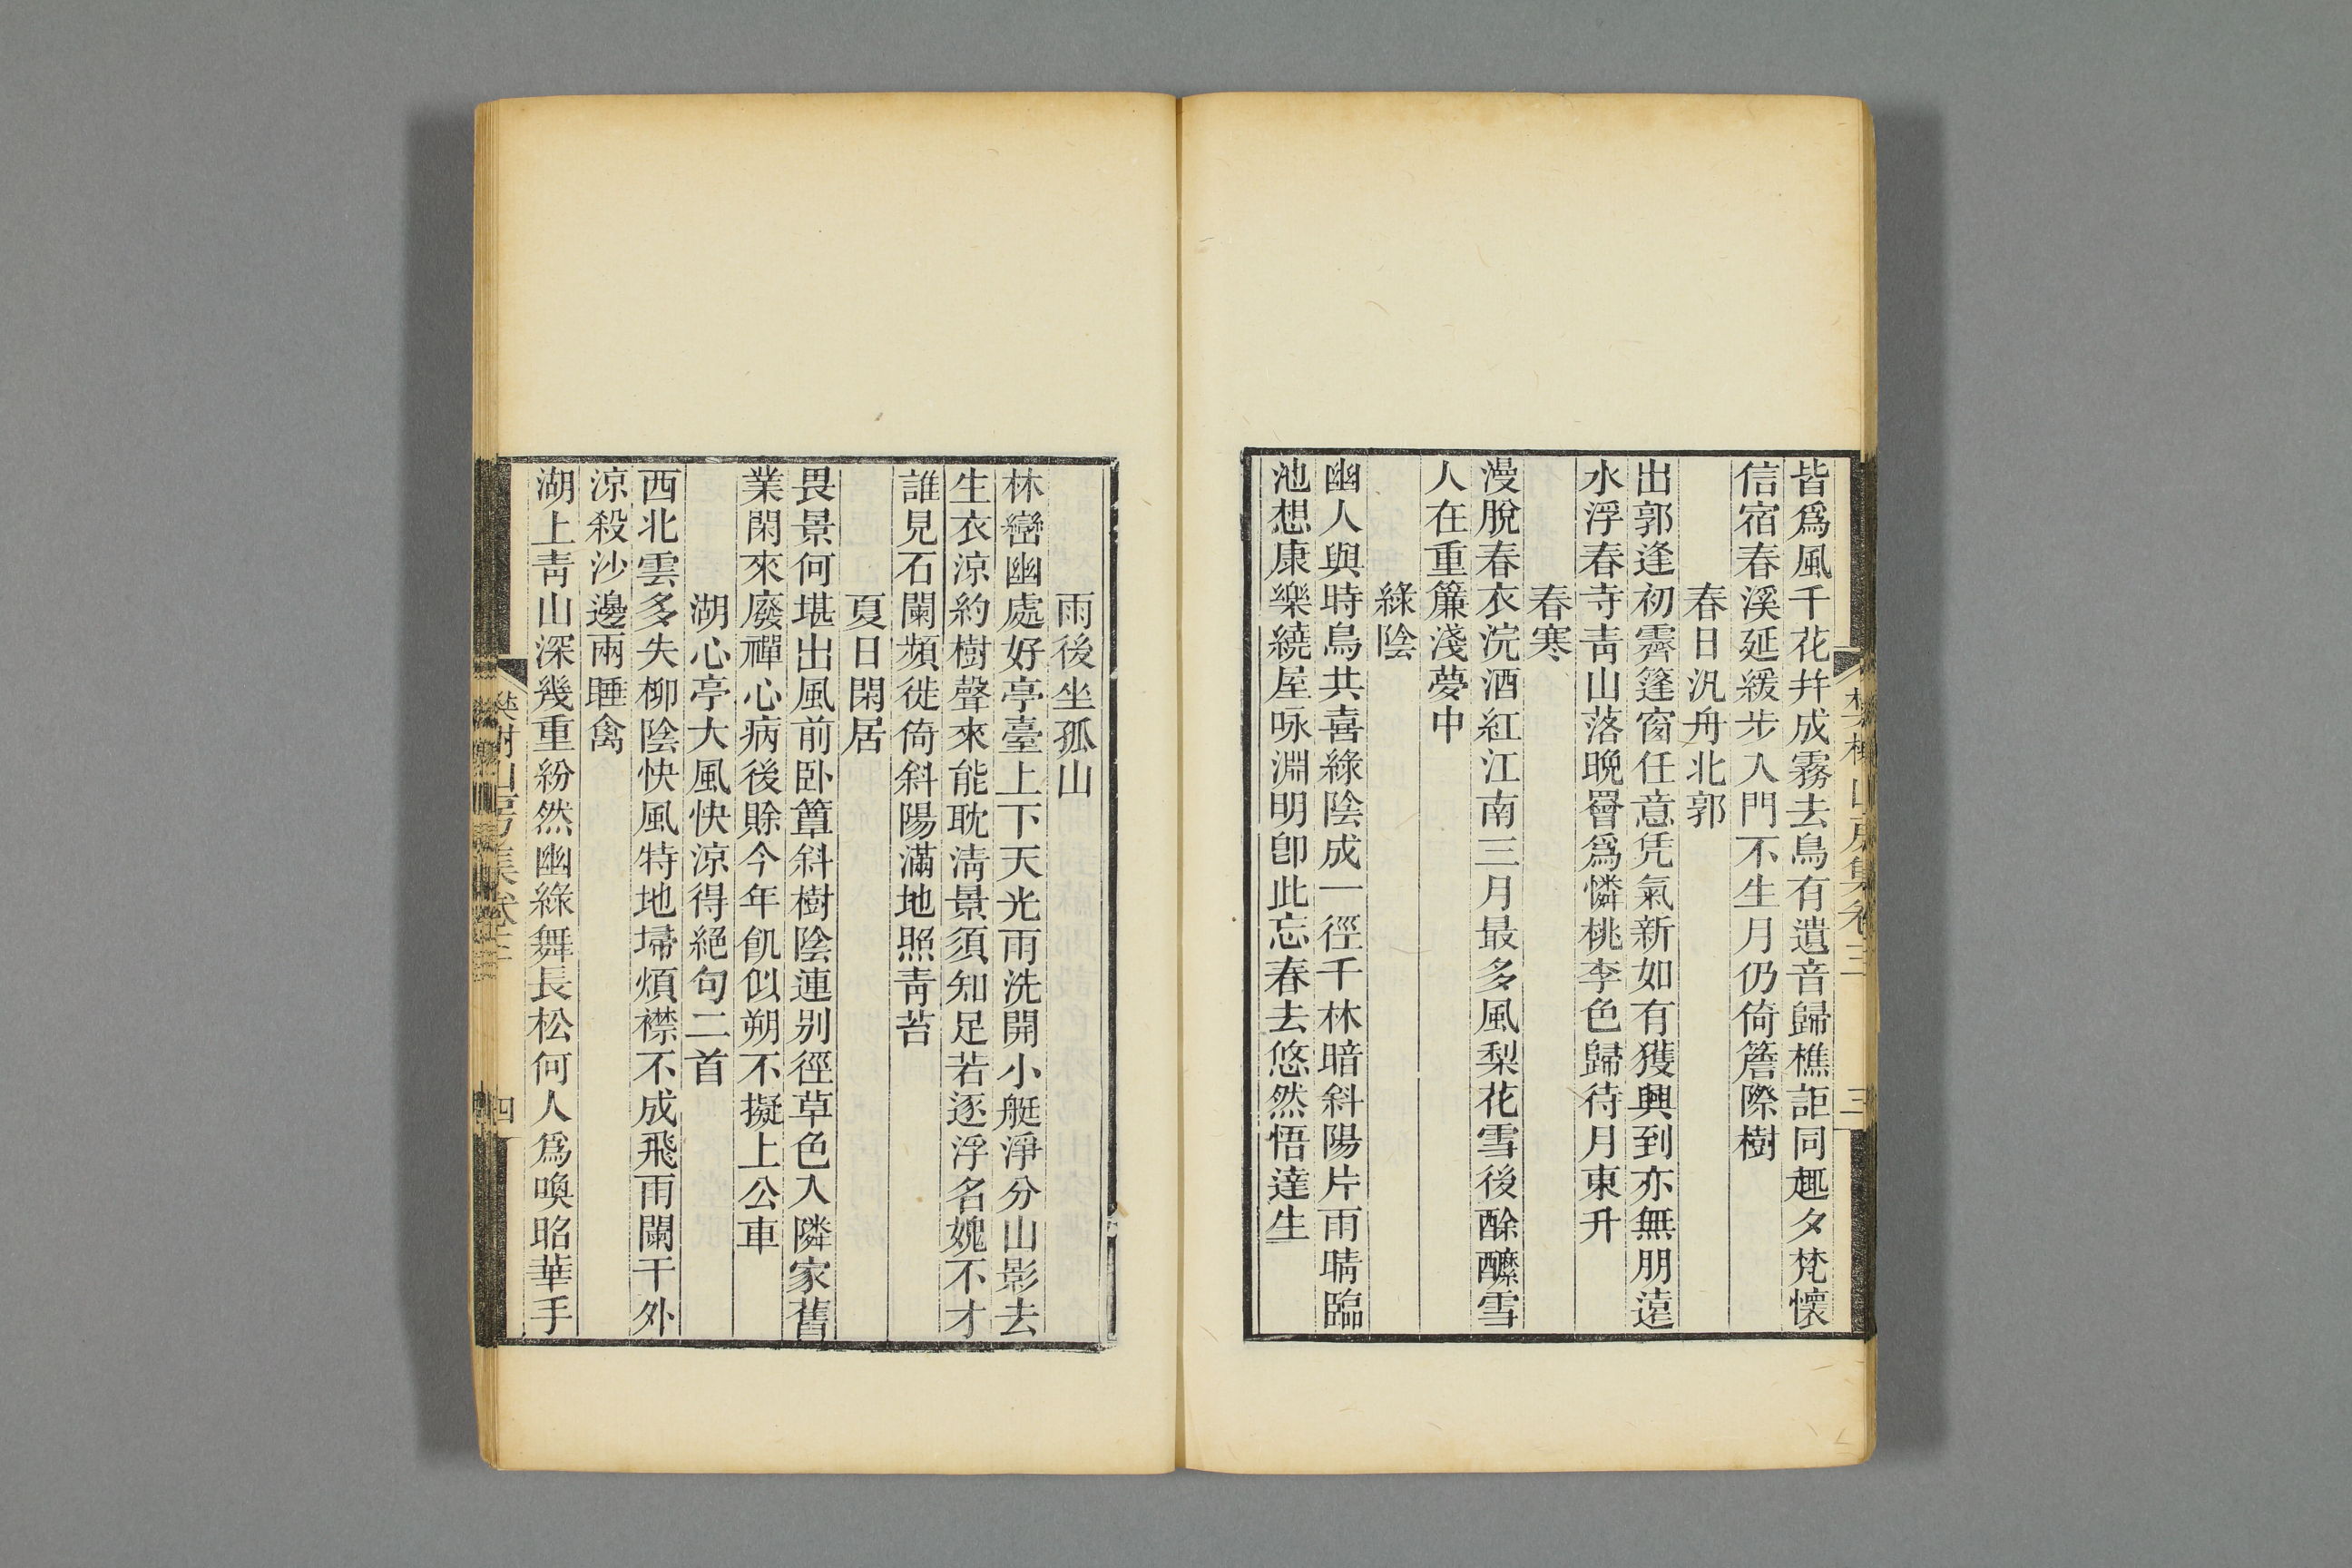 樊榭山房集卷三
三
皆爲風千花幷成霧去鳥有遺音歸樵詎同趣夕梵懷
信宿春溪延緩步入門不生月仍倚簷際樹
春日汎舟北郭
出郭逢初霽篷窗任意凭氣新如有獲興到亦無朋遠
水浮春寺靑山落晚罾爲憐桃李色歸待月東升
春寒
漫脫春衣浣酒紅江南三月最多風梨花雪後酴醾雪
人在重簾淺夢中
綠陰
幽人與時鳥共喜綠陰成一徑千林暗斜陽片雨晴臨
池想康樂繞屋咏淵明卽此忘春去悠然悟達生
雨後坐孤山
林巒幽處好亭臺上下天光雨洗開小艇淨分山影去
生衣涼約樹聲來能耽淸景須知足若逐浮名媿不才
誰見石闌頻徙倚斜陽滿地照靑苔
夏日閑居
畏景何堪出風前卧簟斜樹陰連别徑草色入隣家舊
業閑來廢禪心病後賒今年飢似朔不擬上公車
湖心亭大風快涼得絕句二首
西北雲多失柳陰快風特地埽煩襟不成飛雨闌干外
涼殺沙邊兩睡禽
湖上靑山深幾重紛然幽綠舞長松何人爲喚昭華手
樊榭山房集卷三
四